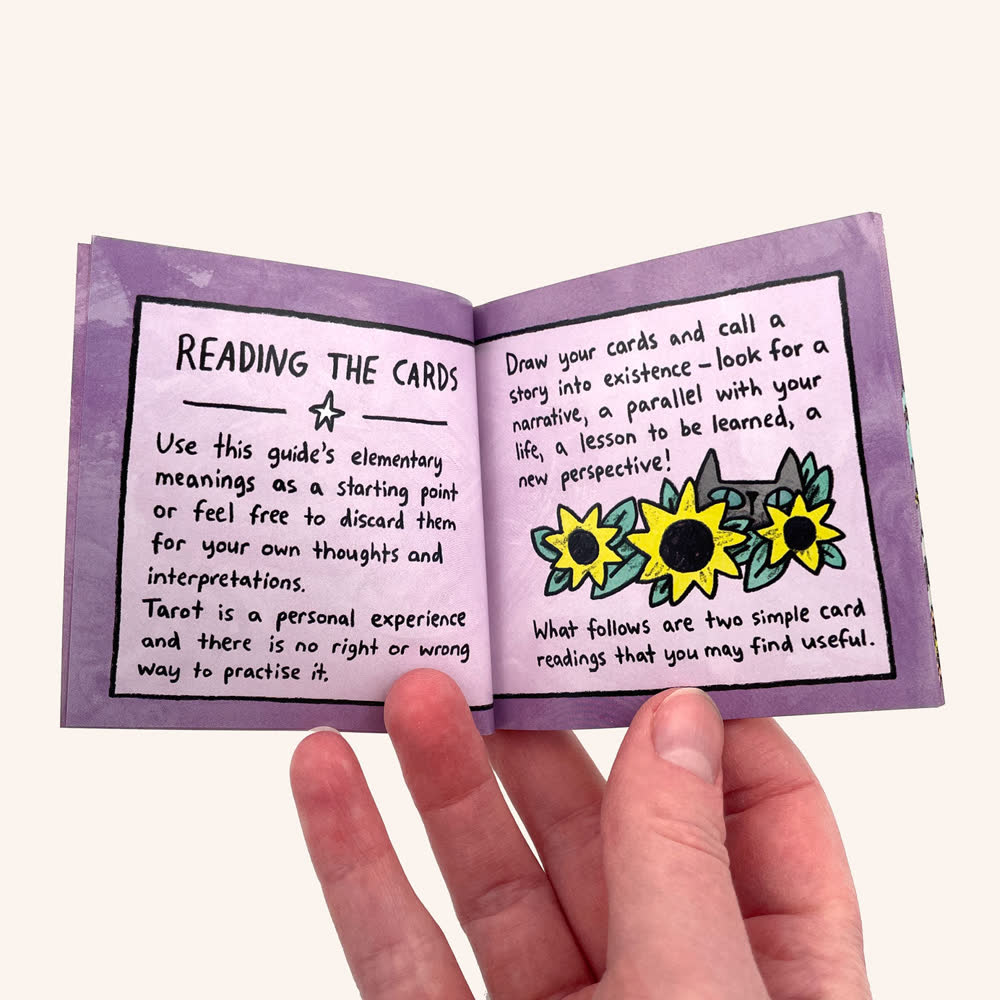 READING THE CARDS
Use this guide's elementary
meanings as a starting point
or feel free to discard them
for your own thoughts and
interpretations.
Tarot is a personal experience
and there is no right or wrong
way to practise it.
Draw your cards and call a
story into existence – look for a
narrative, a parallel with your
life, a lesson to be learned, a
new perspective!
What follows are two simple card
readings that you may find useful.